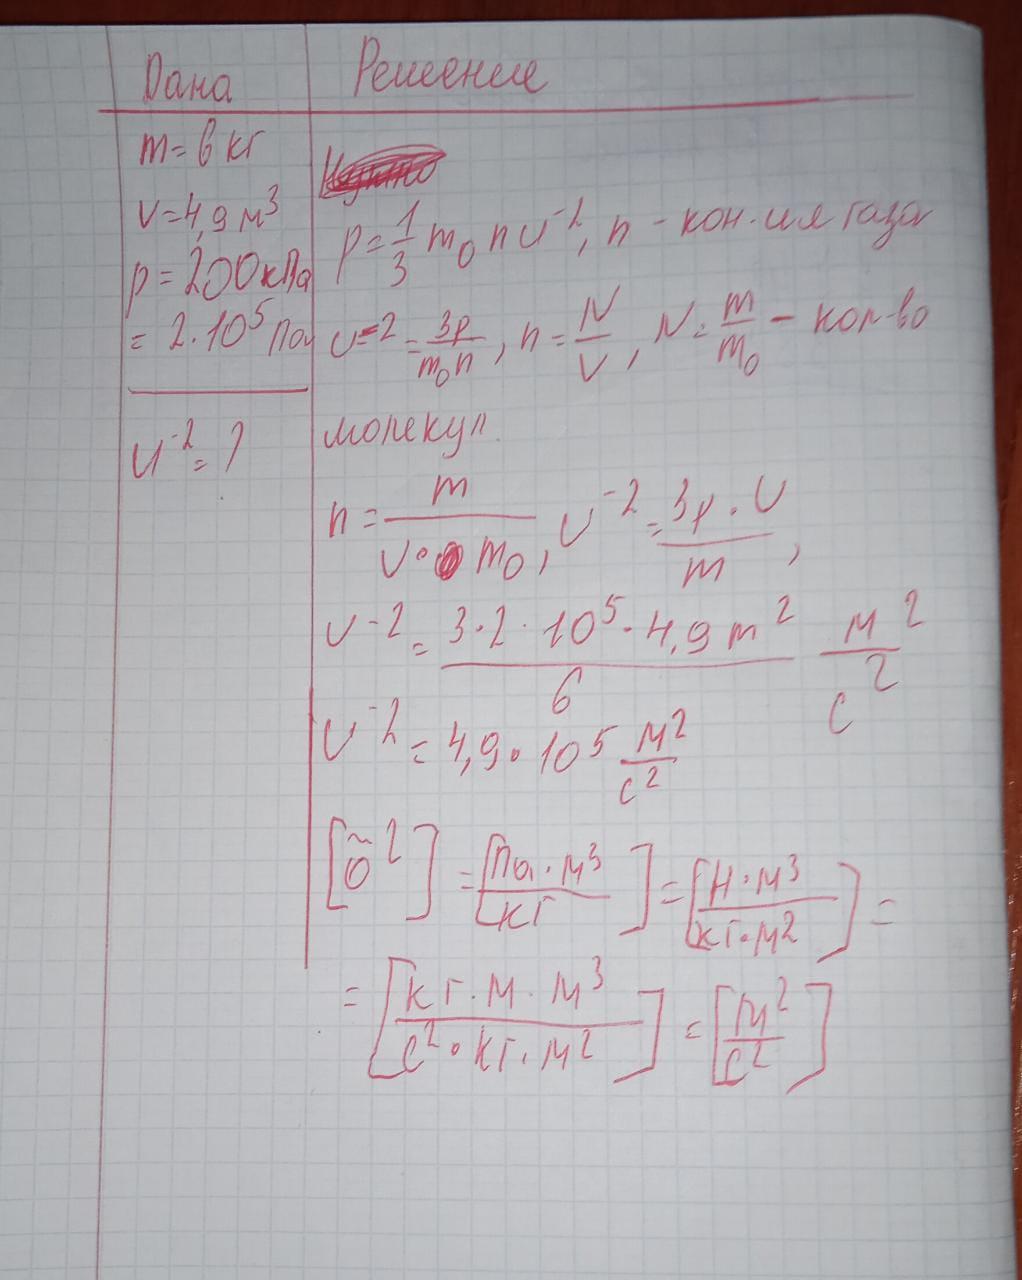 Дана Решение
m = 6 кг
V = 4,9 м³
p = 200 кПа
= 2·10⁵ Па
υ⁻² = ?
p = 1/3 m₀ n υ⁻², n - кон-ия газа
υ⁻² = 3p/(m₀n), n = N/V, N = m/m₀ - кол-во
молекул
n = m/(V·m₀), υ⁻² = (3p·V)/m,
υ⁻² = (3·2·10⁵·4,9 m²)/6 м²/с²
υ⁻² = 4,9·10⁵ м²/с²
[õ²] = [Па·м³/кг] = [Н·м³/кг·м²] =
= [кг·м·м³/с²·кг·м²] = [м²/с²]